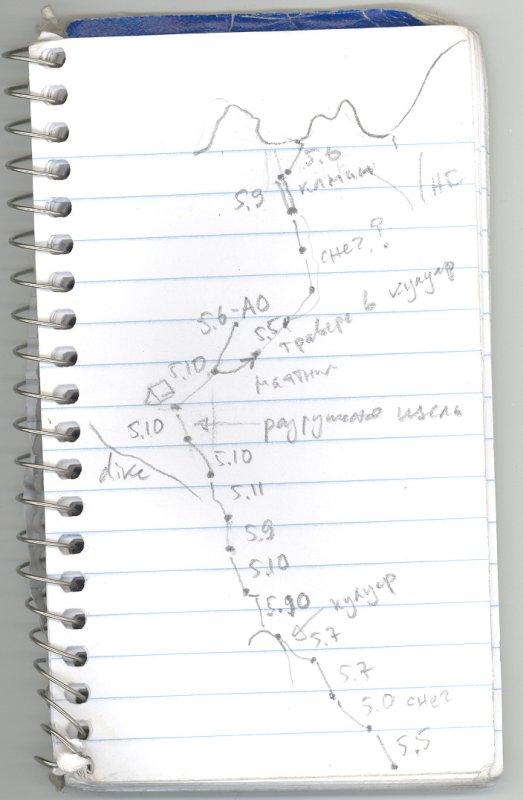 5.6
камин
5.9
НЕ
снег?
5.6-A0
5.5
траверс в кулуар
5.10
маятник
5.10
разрушенная щель
5.10
dike
5.11
5.9
5.10
5.10
кулуар
5.7
5.7
5.0 снег
5.5